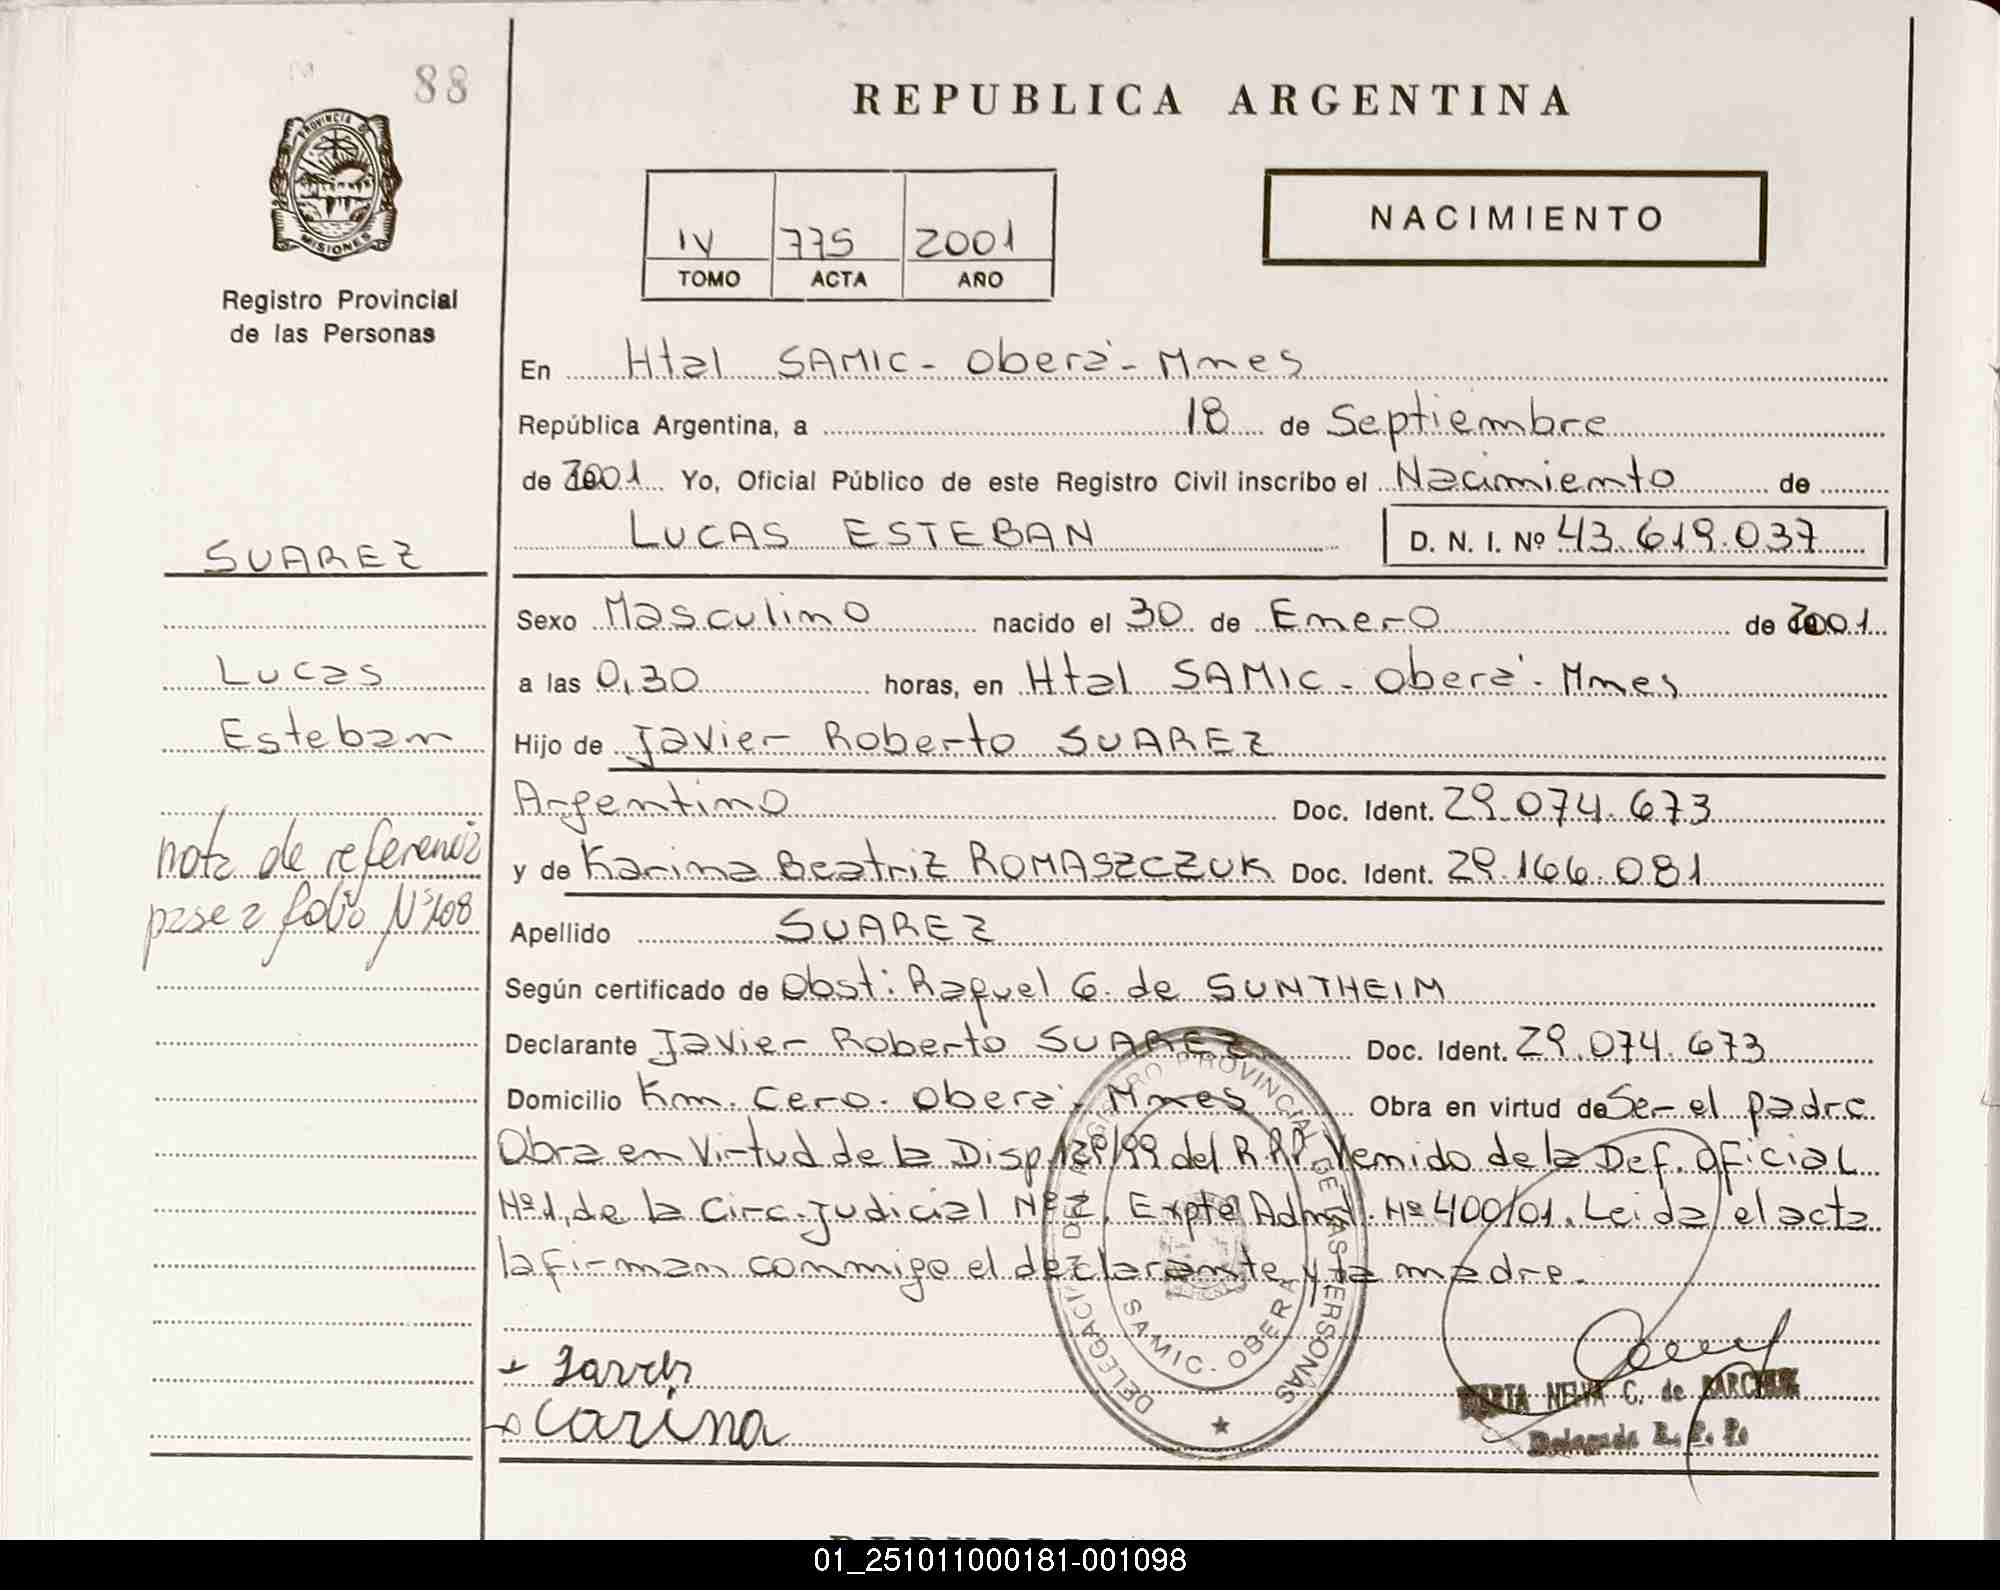 88
REPUBLICA ARGENTINA
PROVINCIA DE
MISIONES
Registro Provincial
de las Personas
IV 775 2001
TOMO ACTA AÑO
NACIMIENTO
En Htal SAMIC - Oberá - Mnes
República Argentina, a 18 de Septiembre
de 2001 Yo, Oficial Público de este Registro Civil inscribo el Nacimiento de
LUCAS ESTEBAN D. N. I. Nº 43.619.037
SUAREZ
Lucas
Esteban
nota de referencia
pase a folio Nº108
Sexo Masculino nacido el 30 de Enero de 2001
a las 0,30 horas, en Htal SAMIC - Oberá - Mnes
Hijo de Javier Roberto SUAREZ
Argentino Doc. Ident. 29.074.673
y de Karina Beatriz ROMASZCZUK Doc. Ident. 29.166.081
Apellido SUAREZ
Según certificado de Obst: Raquel G. de SUNTHEIM
Declarante Javier Roberto SUAREZ Doc. Ident. 29.074.673
Domicilio Km. Cero. Oberá - Mnes Obra en virtud de Ser el padre
Obra en Virtud de la Disp. 129/99 del R.P.P. Venido de la Def. Oficial
Nº1, de la Circ. Judicial Nº2, Expte Admt. Nº 400/01. Leida el acta
la firman conmigo el declarante y la madre.
DELEGACION DEL REGISTRO PROVINCIAL DE LAS PERSONAS
SAMIC. OBERA
Carina
NELVA C. de
Delegada R. P. P.
01_251011000181-001098